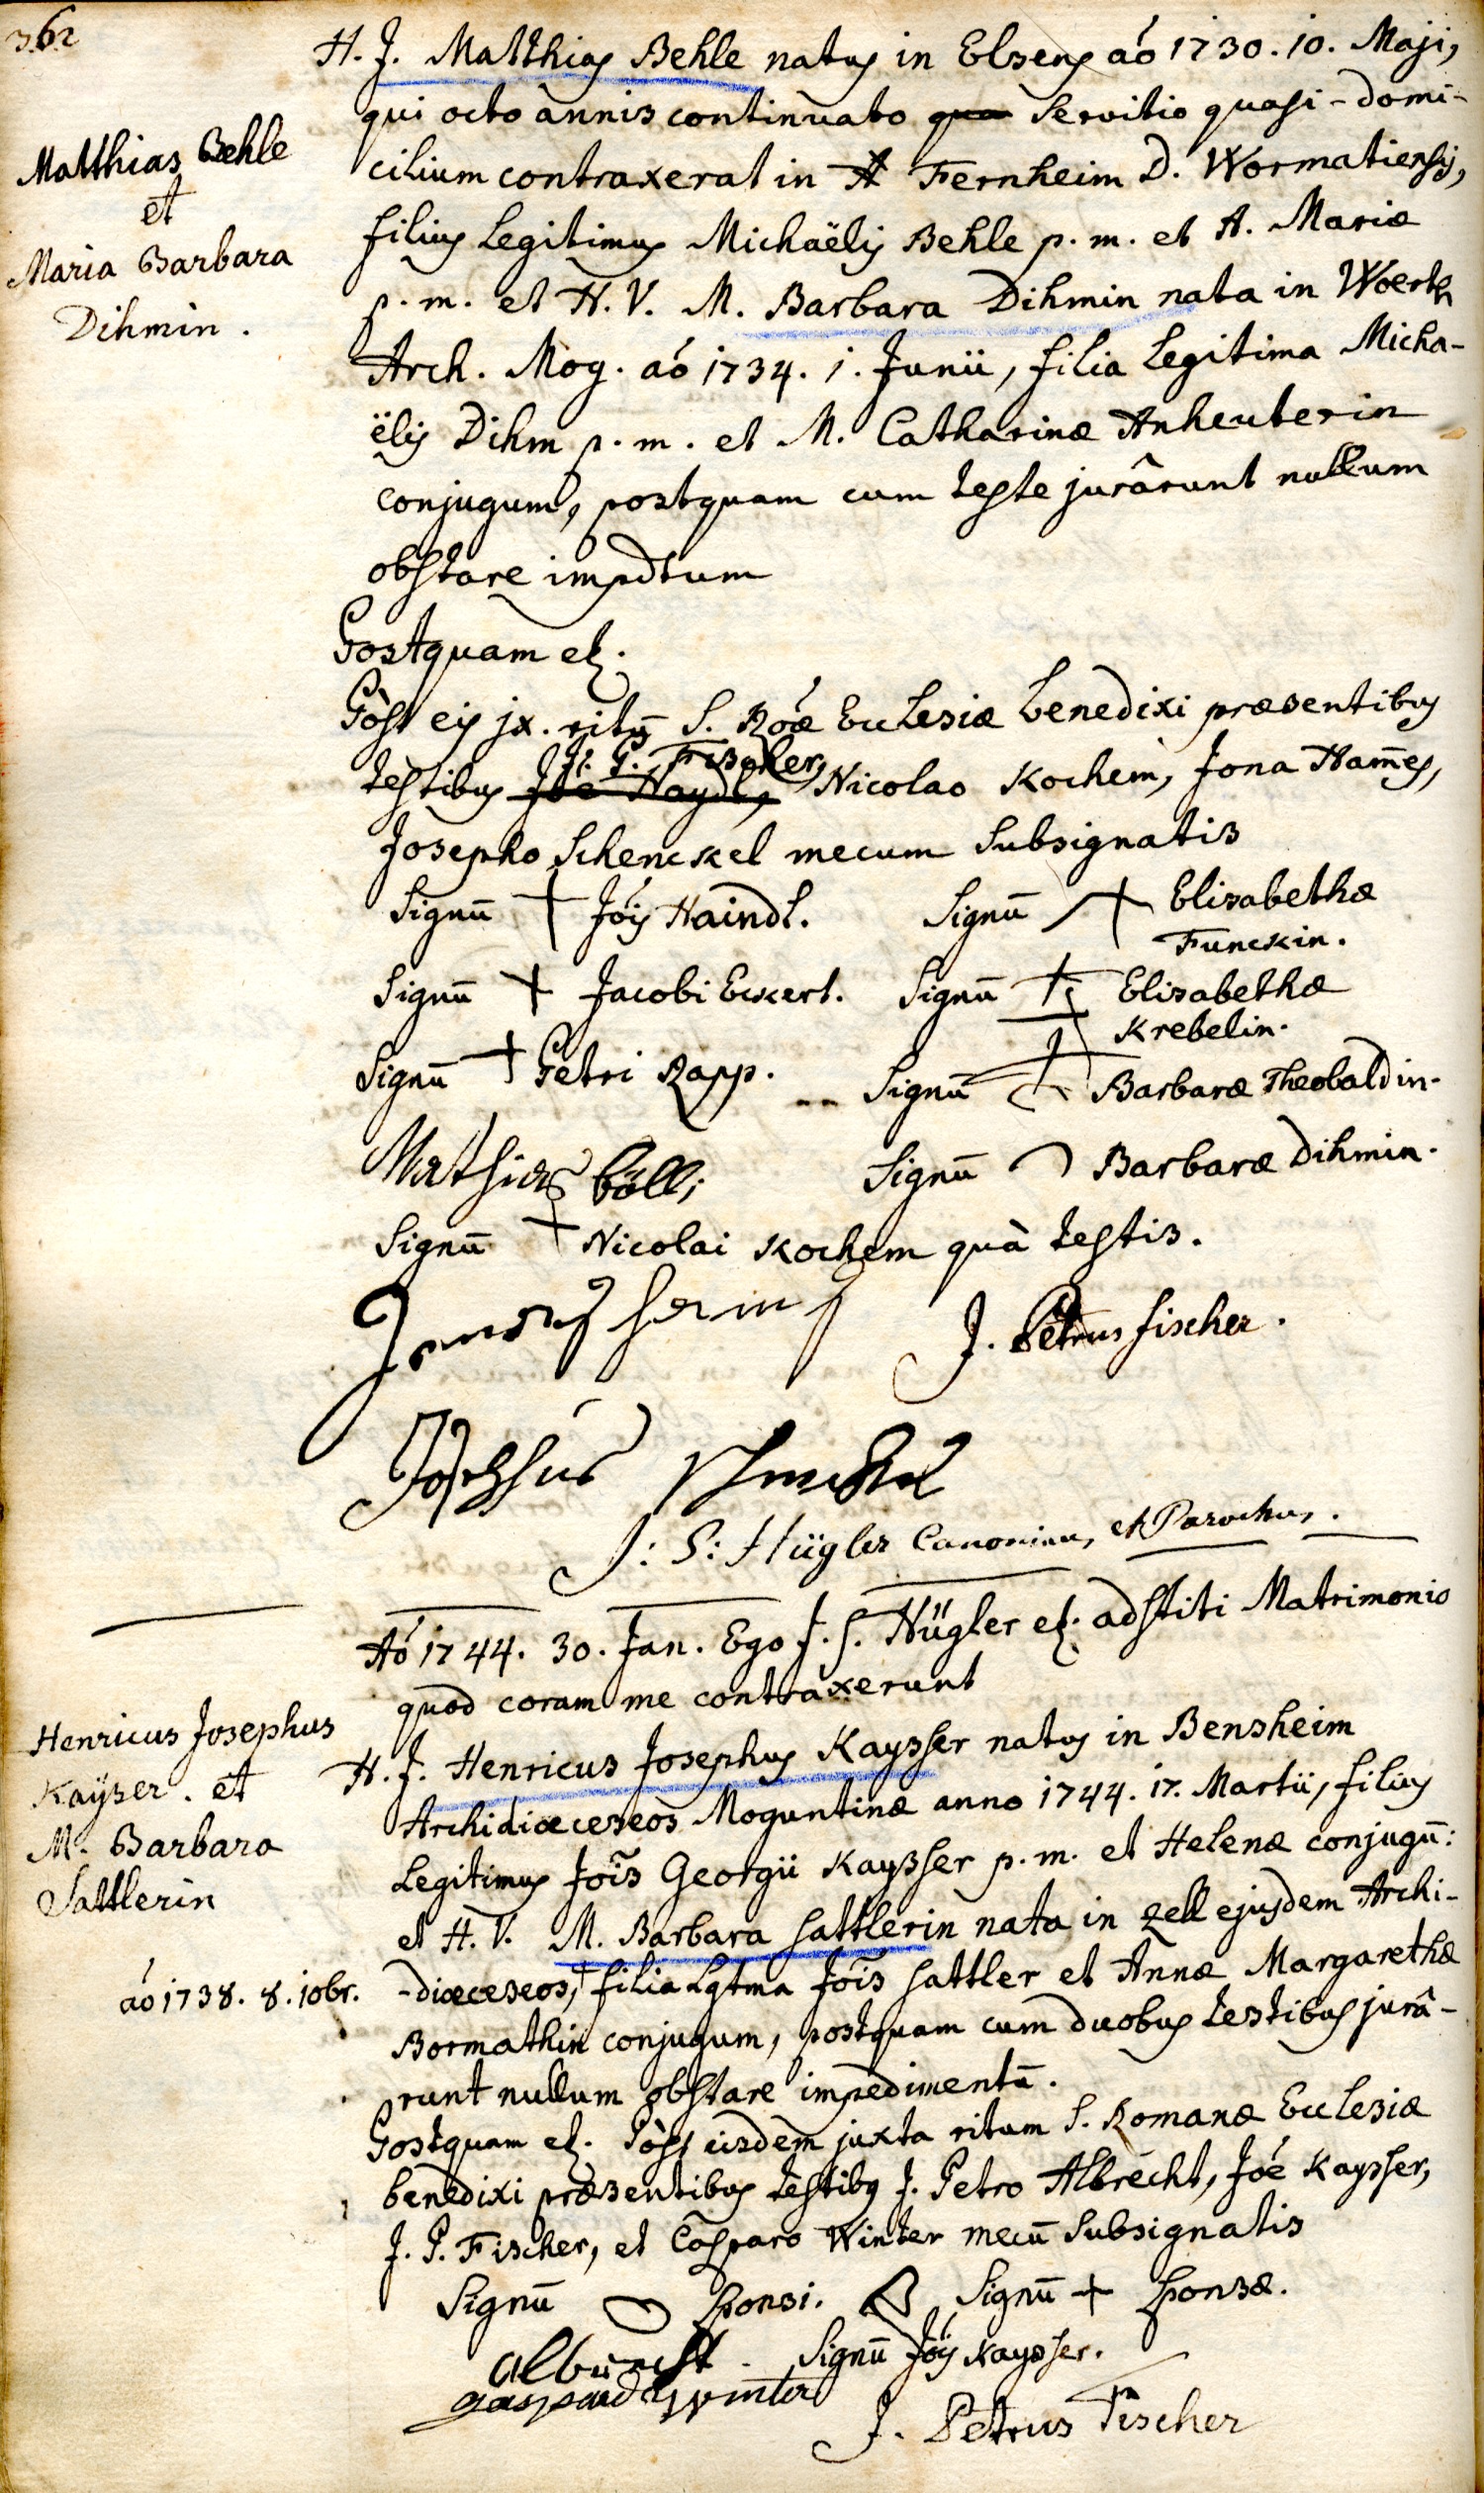 362
Matthias Behle
et
Maria Barbara
Dihmin.
H. J. Matthias Behle natus in Elsens aó 1730. 10. Maji,
qui octo annis continuato qua servitio quasi-domi-
cilium contraxerat in A Fernheim D. Wormatiensis,
filius legitimus Michaëlis Behle p. m. et A. Mariæ
p. m. et H. V. M. Barbara Dihmin nata in Woerth
Arch. Mog. aó 1734. 1. Junii, filia legitima Micha-
ëlis Dihm p. m. et M. Catharinæ Anheuterin
conjugum, postquam cum teste jurârunt nullum
obstare impdtum
Postquam etc.
Pòst eis jx. ritū S. Róæ Ecclesiæ benedixi præsentibus
J. P. Fischer,
testibus Jóe Haydl, Nicolao Kochem, Jona Ham̄es,
Josepho Schenckel mecum subsignatis
Signū + Jóis Haindl. Signū + Elisabethæ
Funckin.
Signū + Jacobi Eckert. Signū + Elisabethæ
Krebelin.
Signū + Petri Rapp. -- Signū Barbaræ Theobaldin.
Mathias böll; Signū Barbaræ Dihmin.
Signū + Nicolai Kochem quà testis.
J. Petrus fischer.
Josephus
J: S: Hügler Canonicus, et Parochus.
Aó 1744. 30. Jan. Ego J. S. Hügler etc. adstiti Matrimonio
quod coram me contraxerunt
Henricus Josephus
Kaÿser. et
M. Barbara
Sattlerin
H. J. Henricus Josephus Kaysser natus in Bensheim
Archidiœceseos Moguntinæ anno 1744. 17. Martii, filius
legitimus Jōis Georgii Kaysser p. m. et Helenæ conjugū:
et H. V. M. Barbara Sattlerin nata in Zell ejusdem Archi-
aó 1738. 8. 10br.
-diœceseos,+ filia lgtma Jóis Sattler et Annæ Margarethæ
Bormathin conjugum, postquam cum duobus testibus jurâ-
runt nullum obstare impedimentū.
Postquam etc. Pòst eisdem juxta ritum S. Romanæ Ecclesiæ
benedixi præsentibus testibus J. Petro Albrecht, Jóe Kaysser,
J. P. Fischer, et Casparo Winter mecū subsignatis
Signū sponsi. Signū + sponsæ.
albrecht. Signū Jóis Kaysser.
gaspard winter
J. Petrus Fischer